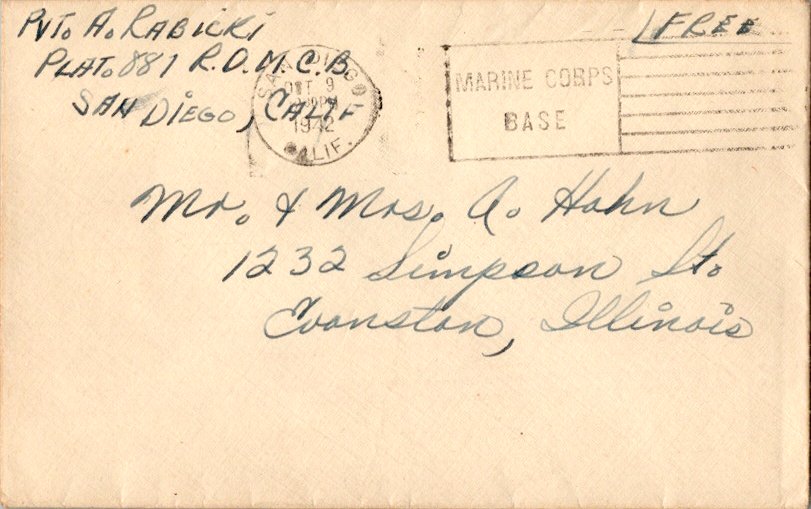 PVT. A. RABICKI
PLAT. 881 R.D.M.C.B
SAN DIEGO, CALIF
FREE
SAN DIEGO
OCT 9
PM
1942
CALIF.
MARINE CORPS
BASE
Mr. & Mrs. A. Hahn
1232 Simpson St.
Evanston, Illinois